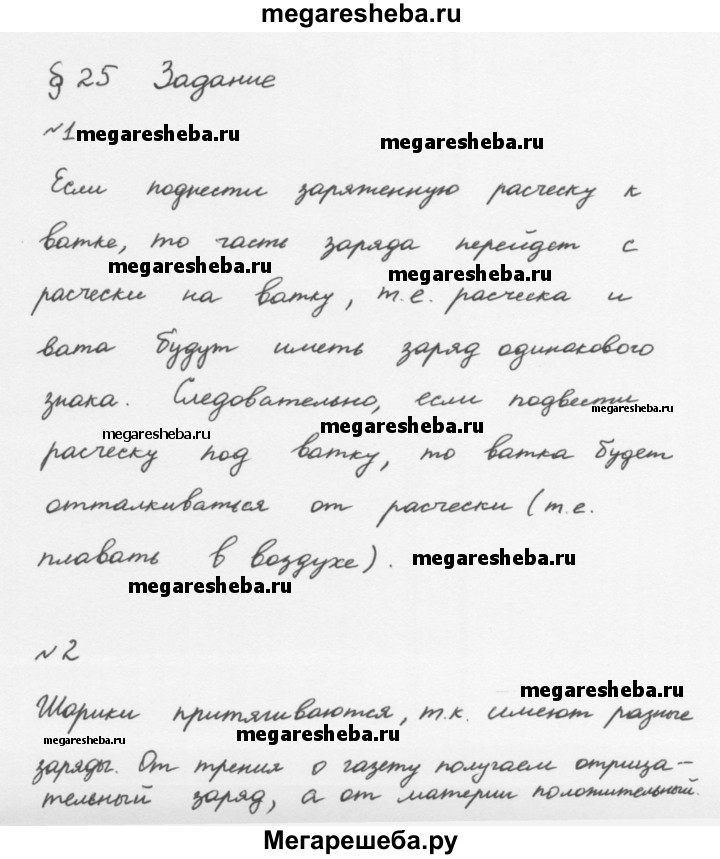 megaresheba.ru
§ 25 Задание
№1 megaresheba.ru
megaresheba.ru
Если поднести заряженную расческу к
megaresheba.ru
ватке, то часть заряда перейдет с
megaresheba.ru megaresheba.ru
расчески на ватку, т.е. расческа и
вата будут иметь заряд одинакового
знака. Следовательно, если подвести
megaresheba.ru megaresheba.ru megaresheba.ru
расческу под ватку, то ватка будет
отталкиваться от расчески (т.е.
плавать в воздухе). megaresheba.ru
megaresheba.ru
№2
megaresheba.ru
Шарики притягиваются, т.к. имеют разные
megaresheba.ru megaresheba.ru
заряды. От трения о газету получаем отрица-
тельный заряд, а от материи положительный.
Мегарешеба.ру